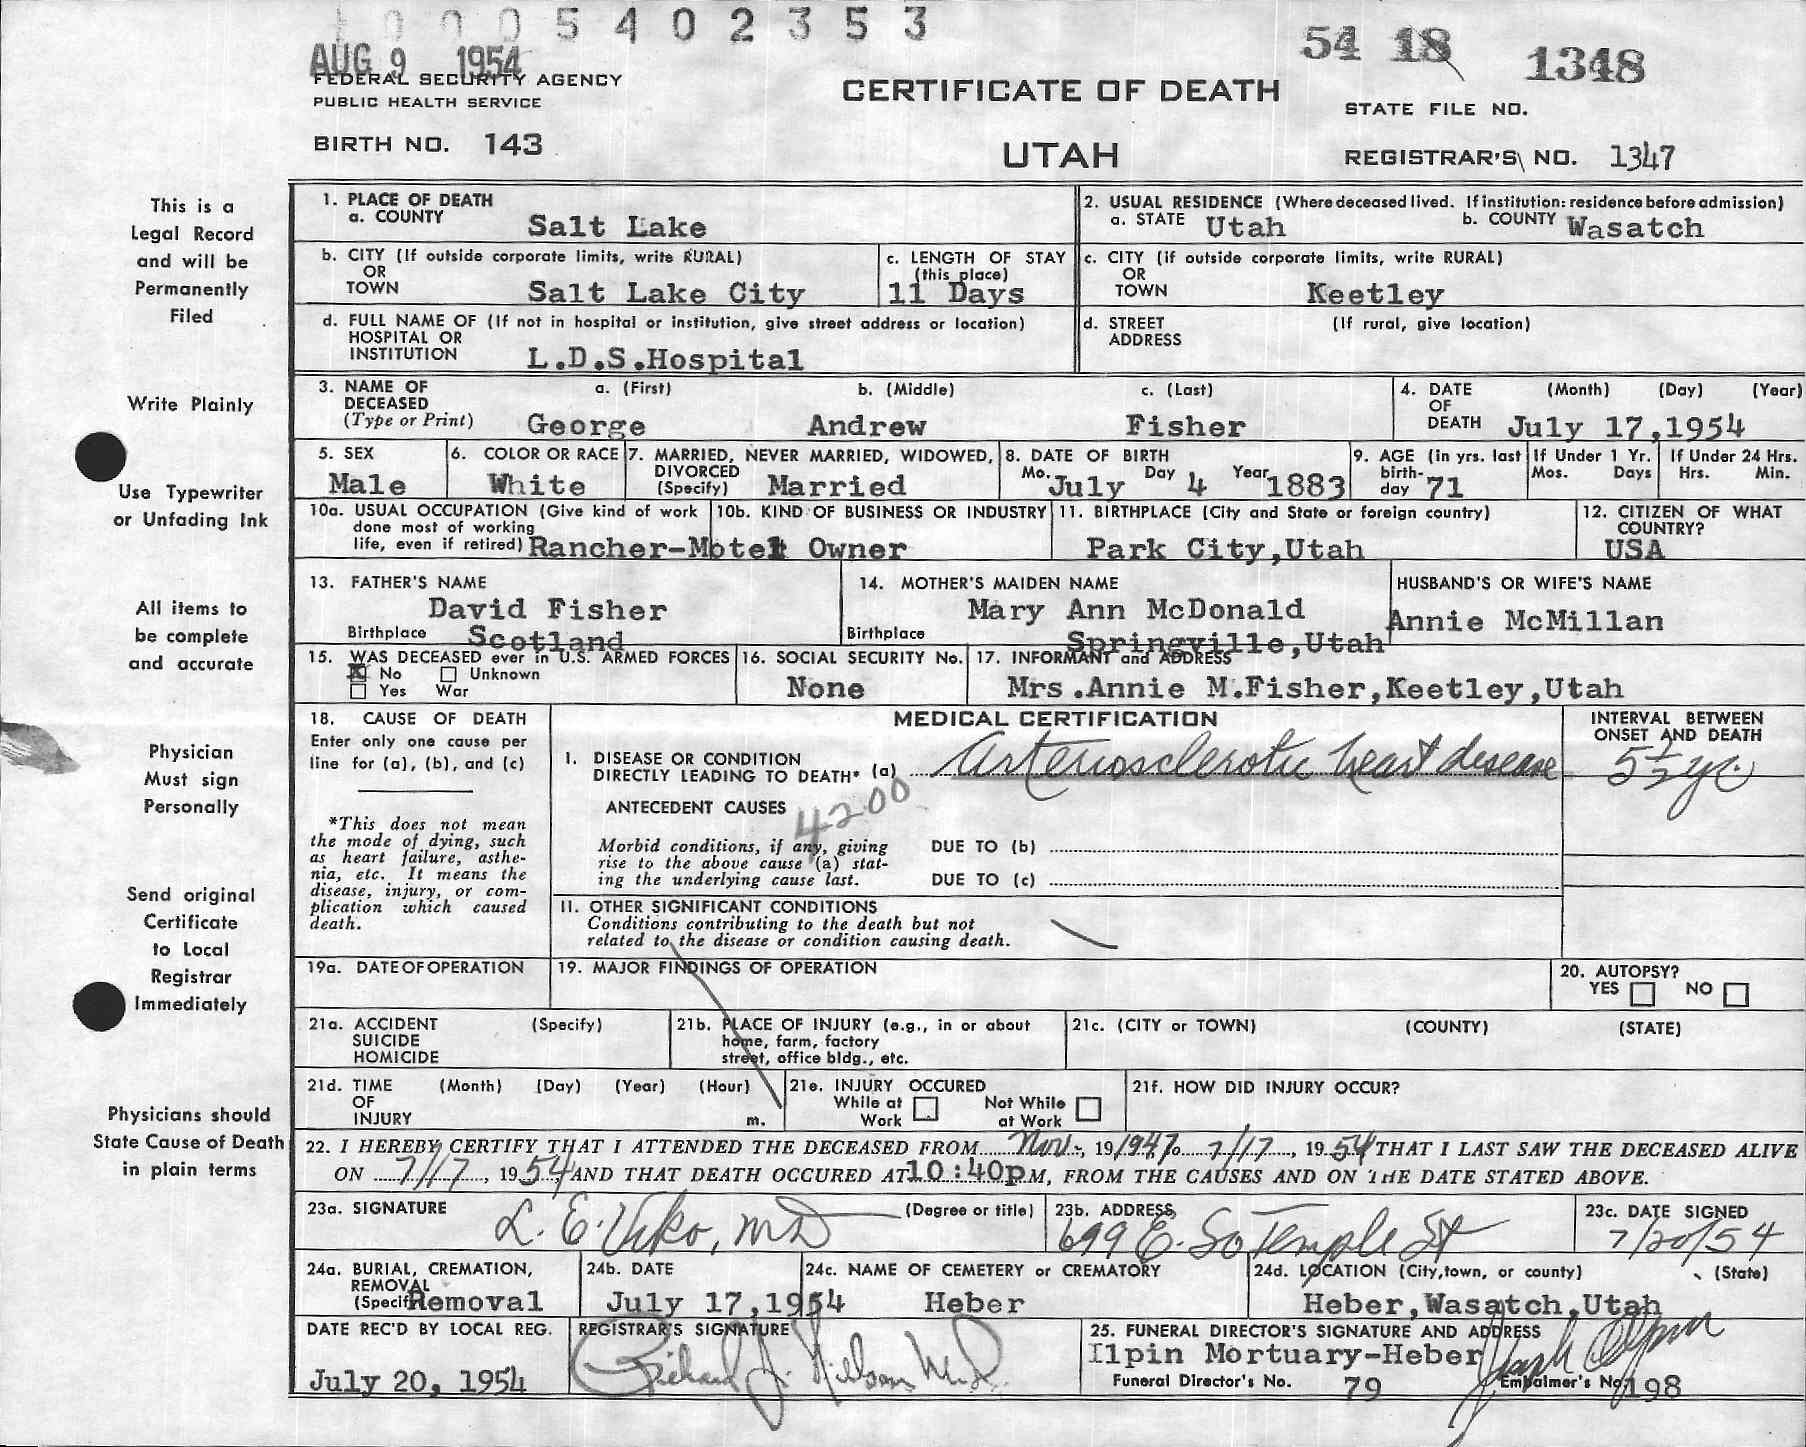 0005402353
AUG 9 1954
54 18 1348
FEDERAL SECURITY AGENCY
PUBLIC HEALTH SERVICE
CERTIFICATE OF DEATH
STATE FILE NO.
BIRTH NO. 143
UTAH
REGISTRAR'S NO. 1347
This is a
Legal Record
and will be
Permanently
Filed
Write Plainly
Use Typewriter
or Unfading Ink
All items to
be complete
and accurate
Physician
Must sign
Personally
Send original
Certificate
to Local
Registrar
Immediately
Physicians should
State Cause of Death
in plain terms
1. PLACE OF DEATH
a. COUNTY Salt Lake
2. USUAL RESIDENCE (Where deceased lived. If institution: residence before admission)
a. STATE Utah b. COUNTY Wasatch
b. CITY (If outside corporate limits, write RURAL)
OR
TOWN Salt Lake City
c. LENGTH OF STAY
(this place)
11 Days
c. CITY (if outside corporate limits, write RURAL)
OR
TOWN Keetley
d. FULL NAME OF (If not in hospital or institution, give street address or location)
HOSPITAL OR
INSTITUTION L.D.S.Hospital
d. STREET (If rural, give location)
ADDRESS
3. NAME OF a. (First) b. (Middle) c. (Last)
DECEASED
(Type or Print) George Andrew Fisher
4. DATE (Month) (Day) (Year)
OF
DEATH July 17,1954
5. SEX
Male
6. COLOR OR RACE
White
7. MARRIED, NEVER MARRIED, WIDOWED,
DIVORCED
(Specify) Married
8. DATE OF BIRTH
Mo. July Day 4 Year 1883
9. AGE (in yrs. last
birth-
day 71
If Under 1 Yr.
Mos. Days
If Under 24 Hrs.
Hrs. Min.
10a. USUAL OCCUPATION (Give kind of work
done most of working
life, even if retired) Rancher-Motel Owner
10b. KIND OF BUSINESS OR INDUSTRY
11. BIRTHPLACE (City and State or foreign country)
Park City,Utah
12. CITIZEN OF WHAT
COUNTRY?
USA
13. FATHER'S NAME
David Fisher
Birthplace Scotland
14. MOTHER'S MAIDEN NAME
Mary Ann McDonald
Birthplace Springville,Utah
HUSBAND'S OR WIFE'S NAME
Annie McMillan
15. WAS DECEASED ever in U.S. ARMED FORCES
X No Unknown
Yes War
16. SOCIAL SECURITY No.
None
17. INFORMANT and ADDRESS
Mrs.Annie M.Fisher,Keetley,Utah
18. CAUSE OF DEATH
Enter only one cause per
line for (a), (b), and (c)
*This does not mean
the mode of dying, such
as heart failure, asthe-
nia, etc. It means the
disease, injury, or com-
plication which caused
death.
MEDICAL CERTIFICATION
INTERVAL BETWEEN
ONSET AND DEATH
1. DISEASE OR CONDITION
DIRECTLY LEADING TO DEATH* (a) Arteriosclerotic heart disease 5 1/2 yr.
ANTECEDENT CAUSES
4200
Morbid conditions, if any, giving
rise to the above cause (a) stat-
ing the underlying cause last.
DUE TO (b)
DUE TO (c)
11. OTHER SIGNIFICANT CONDITIONS
Conditions contributing to the death but not
related to the disease or condition causing death.
19a. DATE OF OPERATION
19. MAJOR FINDINGS OF OPERATION
20. AUTOPSY?
YES NO
21a. ACCIDENT (Specify)
SUICIDE
HOMICIDE
21b. PLACE OF INJURY (e.g., in or about
home, farm, factory
street, office bldg., etc.
21c. (CITY or TOWN) (COUNTY) (STATE)
21d. TIME (Month) (Day) (Year) (Hour)
OF
INJURY m.
21e. INJURY OCCURED
While at Work Not While at Work
21f. HOW DID INJURY OCCUR?
22. I HEREBY CERTIFY THAT I ATTENDED THE DECEASED FROM Nov., 19 1947 to 7/17, 1954 THAT I LAST SAW THE DECEASED ALIVE
ON 7/17, 1954 AND THAT DEATH OCCURED AT 10:40p M, FROM THE CAUSES AND ON THE DATE STATED ABOVE.
23a. SIGNATURE L. E. Viko, MD (Degree or title)
23b. ADDRESS
699 E. So Temple St
23c. DATE SIGNED
7/20/54
24a. BURIAL, CREMATION,
REMOVAL
(Specify Removal
24b. DATE
July 17,1954
24c. NAME OF CEMETERY or CREMATORY
Heber
24d. LOCATION (City,town, or county) (State)
Heber,Wasatch,Utah
DATE REC'D BY LOCAL REG.
July 20, 1954
REGISTRAR'S SIGNATURE
Richard J. Nielson M.D.
25. FUNERAL DIRECTOR'S SIGNATURE AND ADDRESS
Ilpin Mortuary-Heber
Funeral Director's No. 79 Embalmer's No. 198